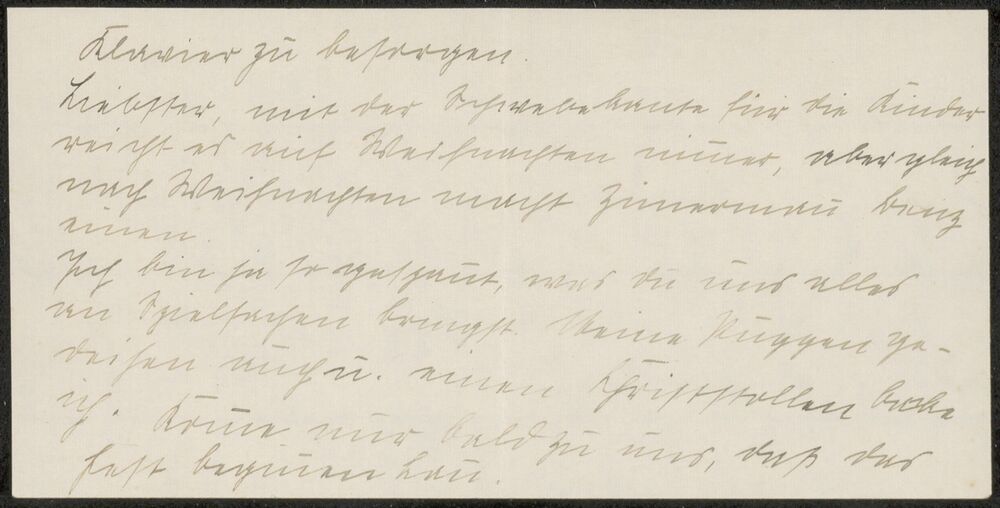 Klavier zu besorgen.
Liebster, mit der Schwebekante für die Kinder
reicht es auf Weihnachten nim̄er, aber gleich
nach Weihnachten macht Zim̄erman̄
einen.
Ich bin ja so gespan̄t, was du uns alles
an Spielsachen bringst. Meine Puppen ge-
deihen auch u. einen Christstollen backe
ich. Kom̄e nur bald zu uns, daß das
Fest begin̄en kan̄.